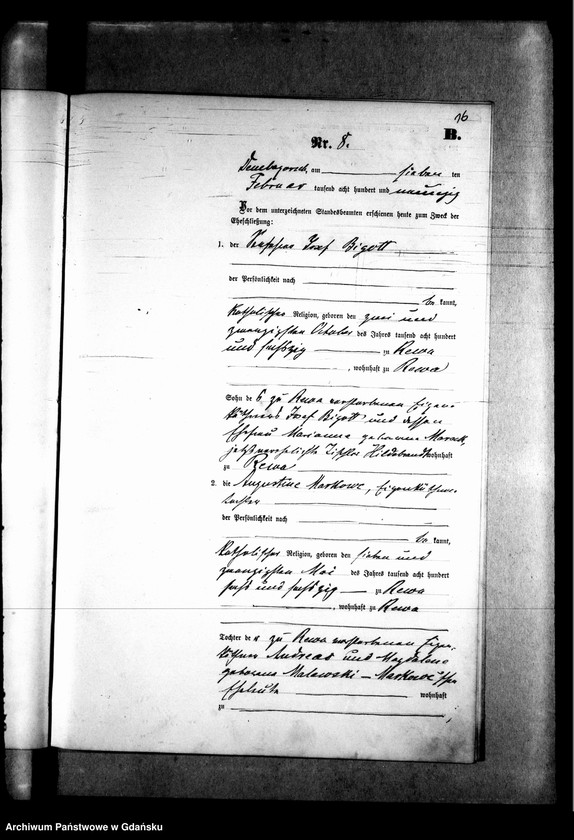 16
B.
Nr. 8.
am sieben ten
Februar tausend acht hundert und neunzig
Vor dem unterzeichneten Standesbeamten erschienen heute zum Zweck der
Eheschließung:
1. der Josef Bigott
der Persönlichkeit nach
be kannt,
katholischer Religion, geboren den zwei und
zwanzigsten October des Jahres tausend acht hundert
und sechszig zu Rewa
, wohnhaft zu Rewa
Sohn des zu Rewa verstorbenen Eigen-
käthners Josef Bigott und dessen
Ehefrau Marianna geborene
jetzt verehelichte Hildebrandt wohnhaft
zu Rewa
2. die Augustine Markowc, Eigenkäthner-
tochter
der Persönlichkeit nach
be kannt,
katholischer Religion, geboren den sieben und
zwanzigsten Mai des Jahres tausend acht hundert
sechs und sechszig zu Rewa
, wohnhaft zu Rewa
Tochter der zu Rewa verstorbenen Eigen-
käthner Andreas und Magdalena
geborene Malewski - Markowc'schen
Eheleute wohnhaft
zu
Archiwum Państwowe w Gdańsku